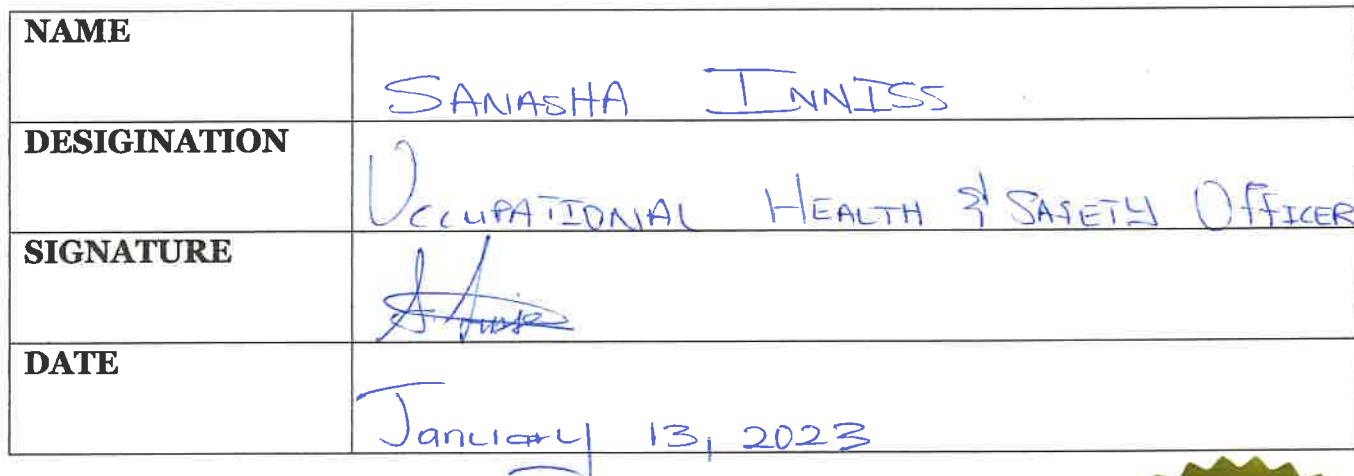 NAME
SANASHA INNISS
DESIGINATION
OCCUPATIONAL HEALTH & SAFETY OFFICER
SIGNATURE
DATE
January 13, 2023